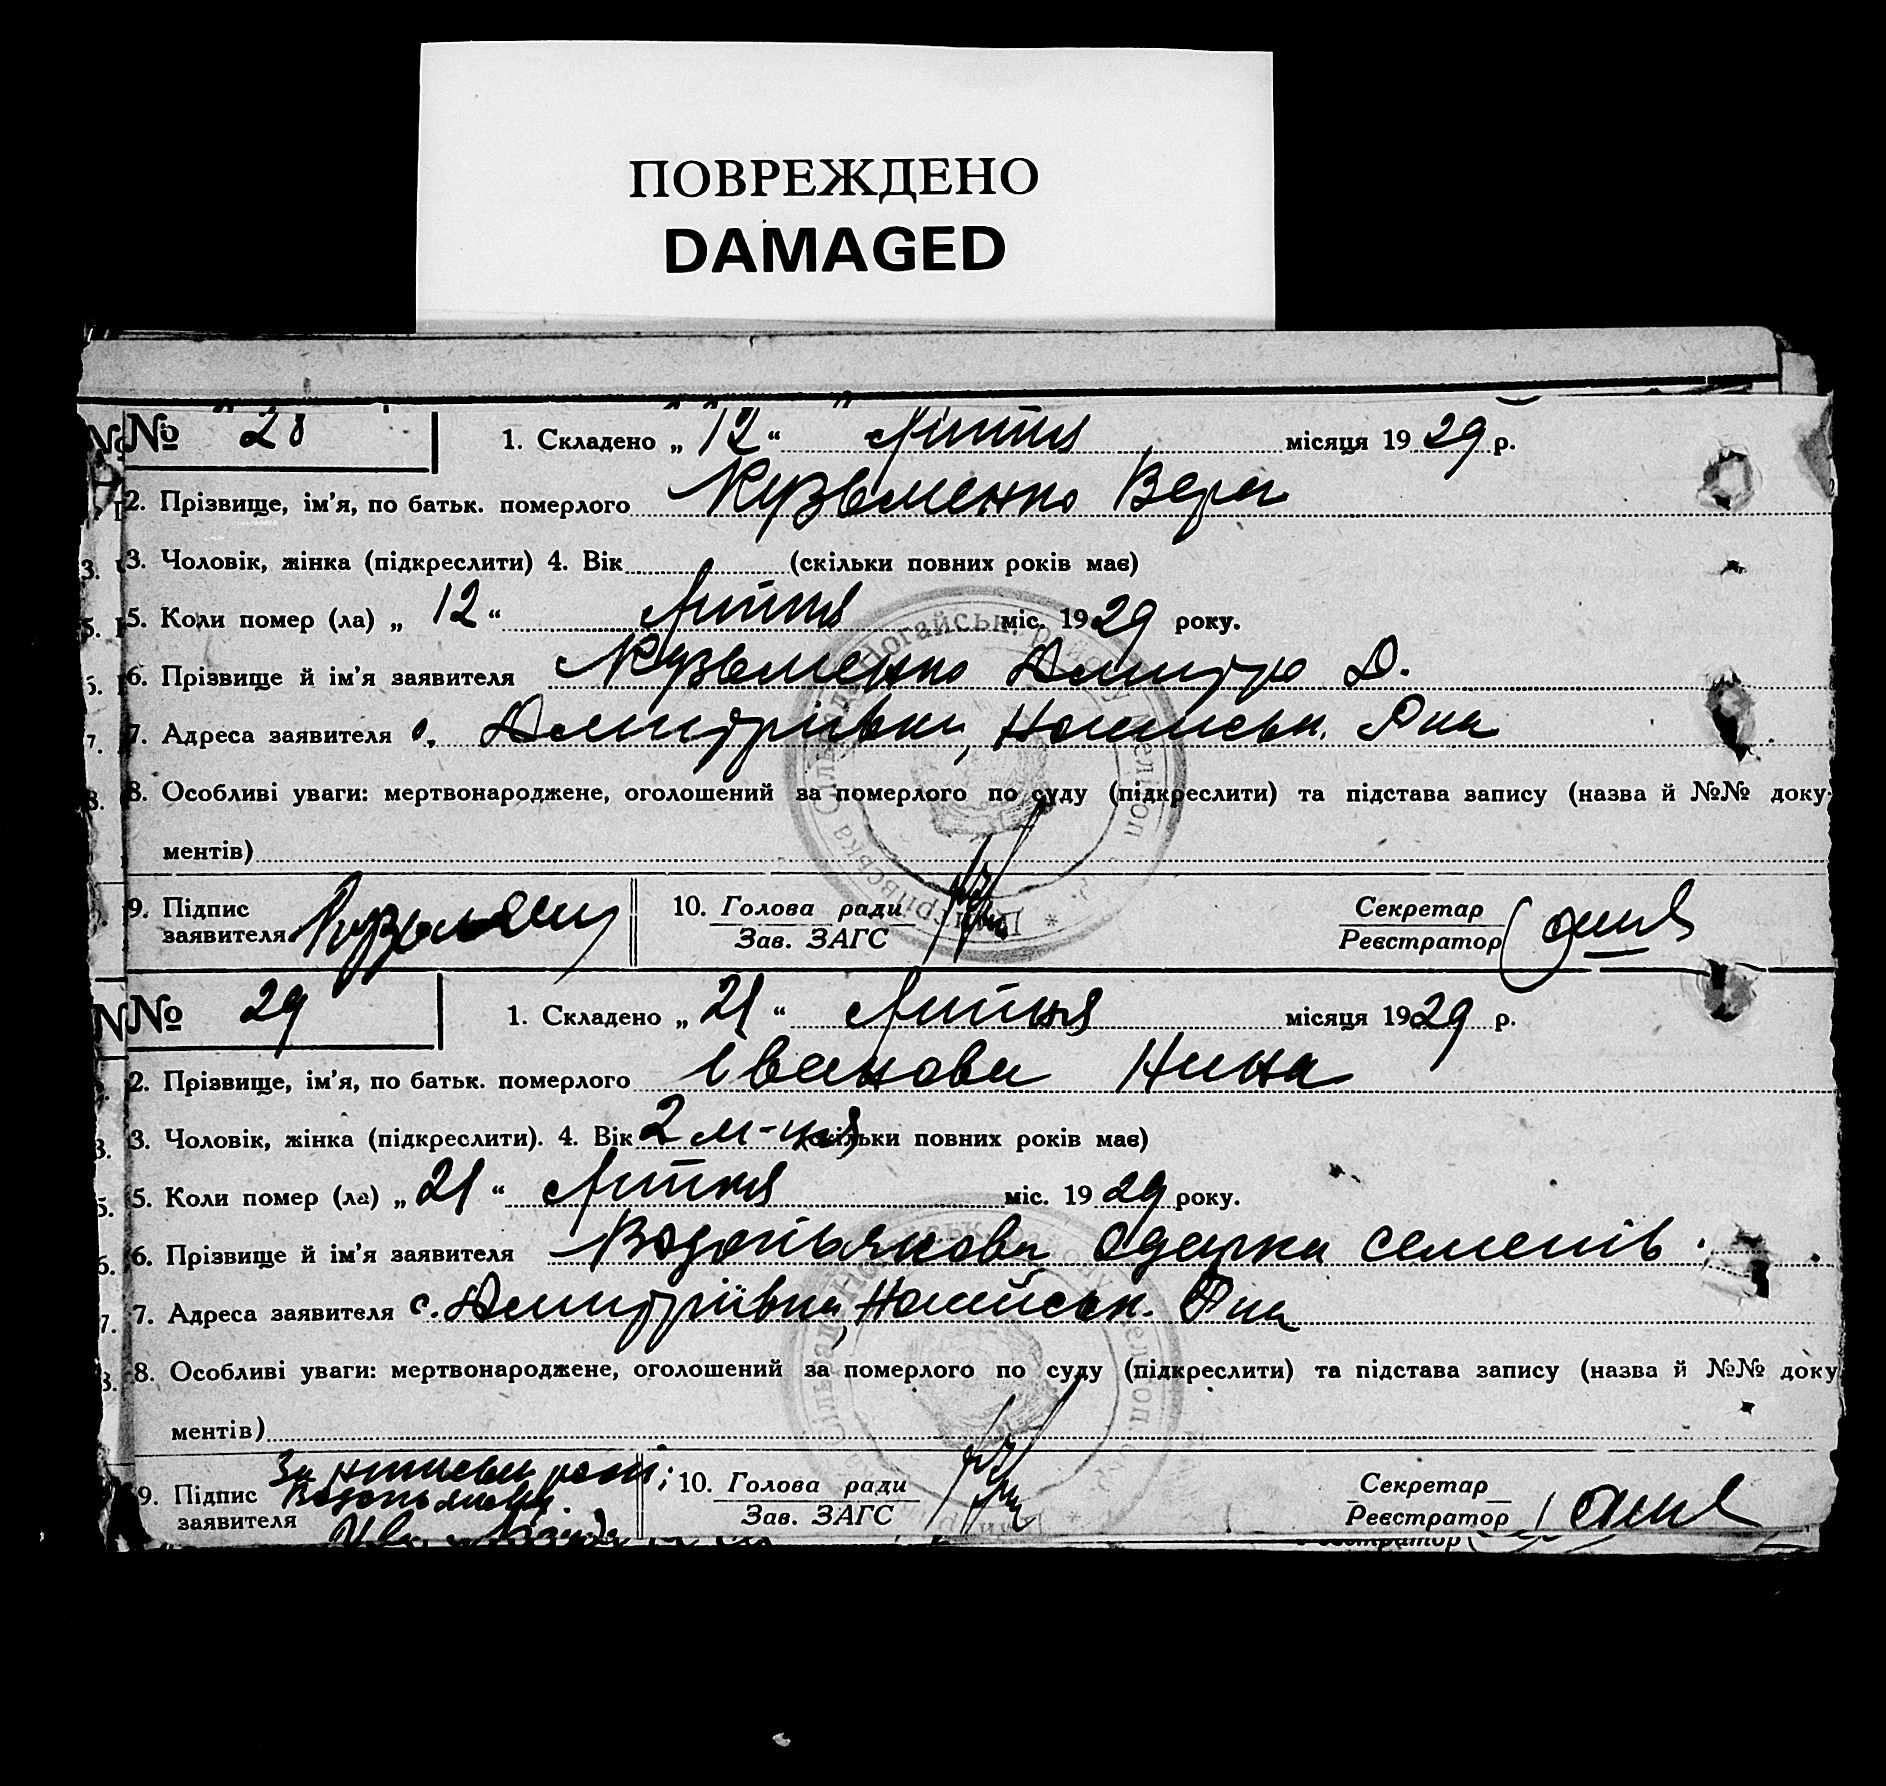 ПОВРЕЖДЕНО
DAMAGED
№ 28 1. Складено „ 12 “ Липня місяця 19 29 р.
2. Прізвище, ім’я, по батьк. померлого Кузьменко Вера
3. Чоловік, жінка (підкреслити) 4. Вік (скільки повних років має)
5. Коли помер (ла) „ 12 “ Липня міс. 19 29 року.
6. Прізвище й ім’я заявителя Кузьменко Дмитро Д.
7. Адреса заявителя с. Дмитрівки, Ногайськ. Р на
8. Особливі уваги: мертвонароджене, оголошений за померлого по суду (підкреслити) та підстава запису (назва й №№ доку-
ментів)
9. Підпис заявителя 10. Голова ради Секретар
Зав. ЗАГС Реєстратор
№ 29 1. Складено „ 21 “ Липня місяця 19 29 р.
2. Прізвище, ім’я, по батьк. померлого Іванова Нина
3. Чоловік, жінка (підкреслити). 4. Вік 2 м-ця (скільки повних років має)
5. Коли помер (ла) „ 21 “ Липня міс. 19 29 року.
6. Прізвище й ім’я заявителя Водопьянова Одарка Семенів.
7. Адреса заявителя с. Дмитрівка, Ногайськ. Р на
8. Особливі уваги: мертвонароджене, оголошений за померлого по суду (підкреслити) та підстава запису (назва й №№ доку
ментів)
9. Підпис заявителя За 10. Голова ради Секретар
Зав. ЗАГС Реєстратор